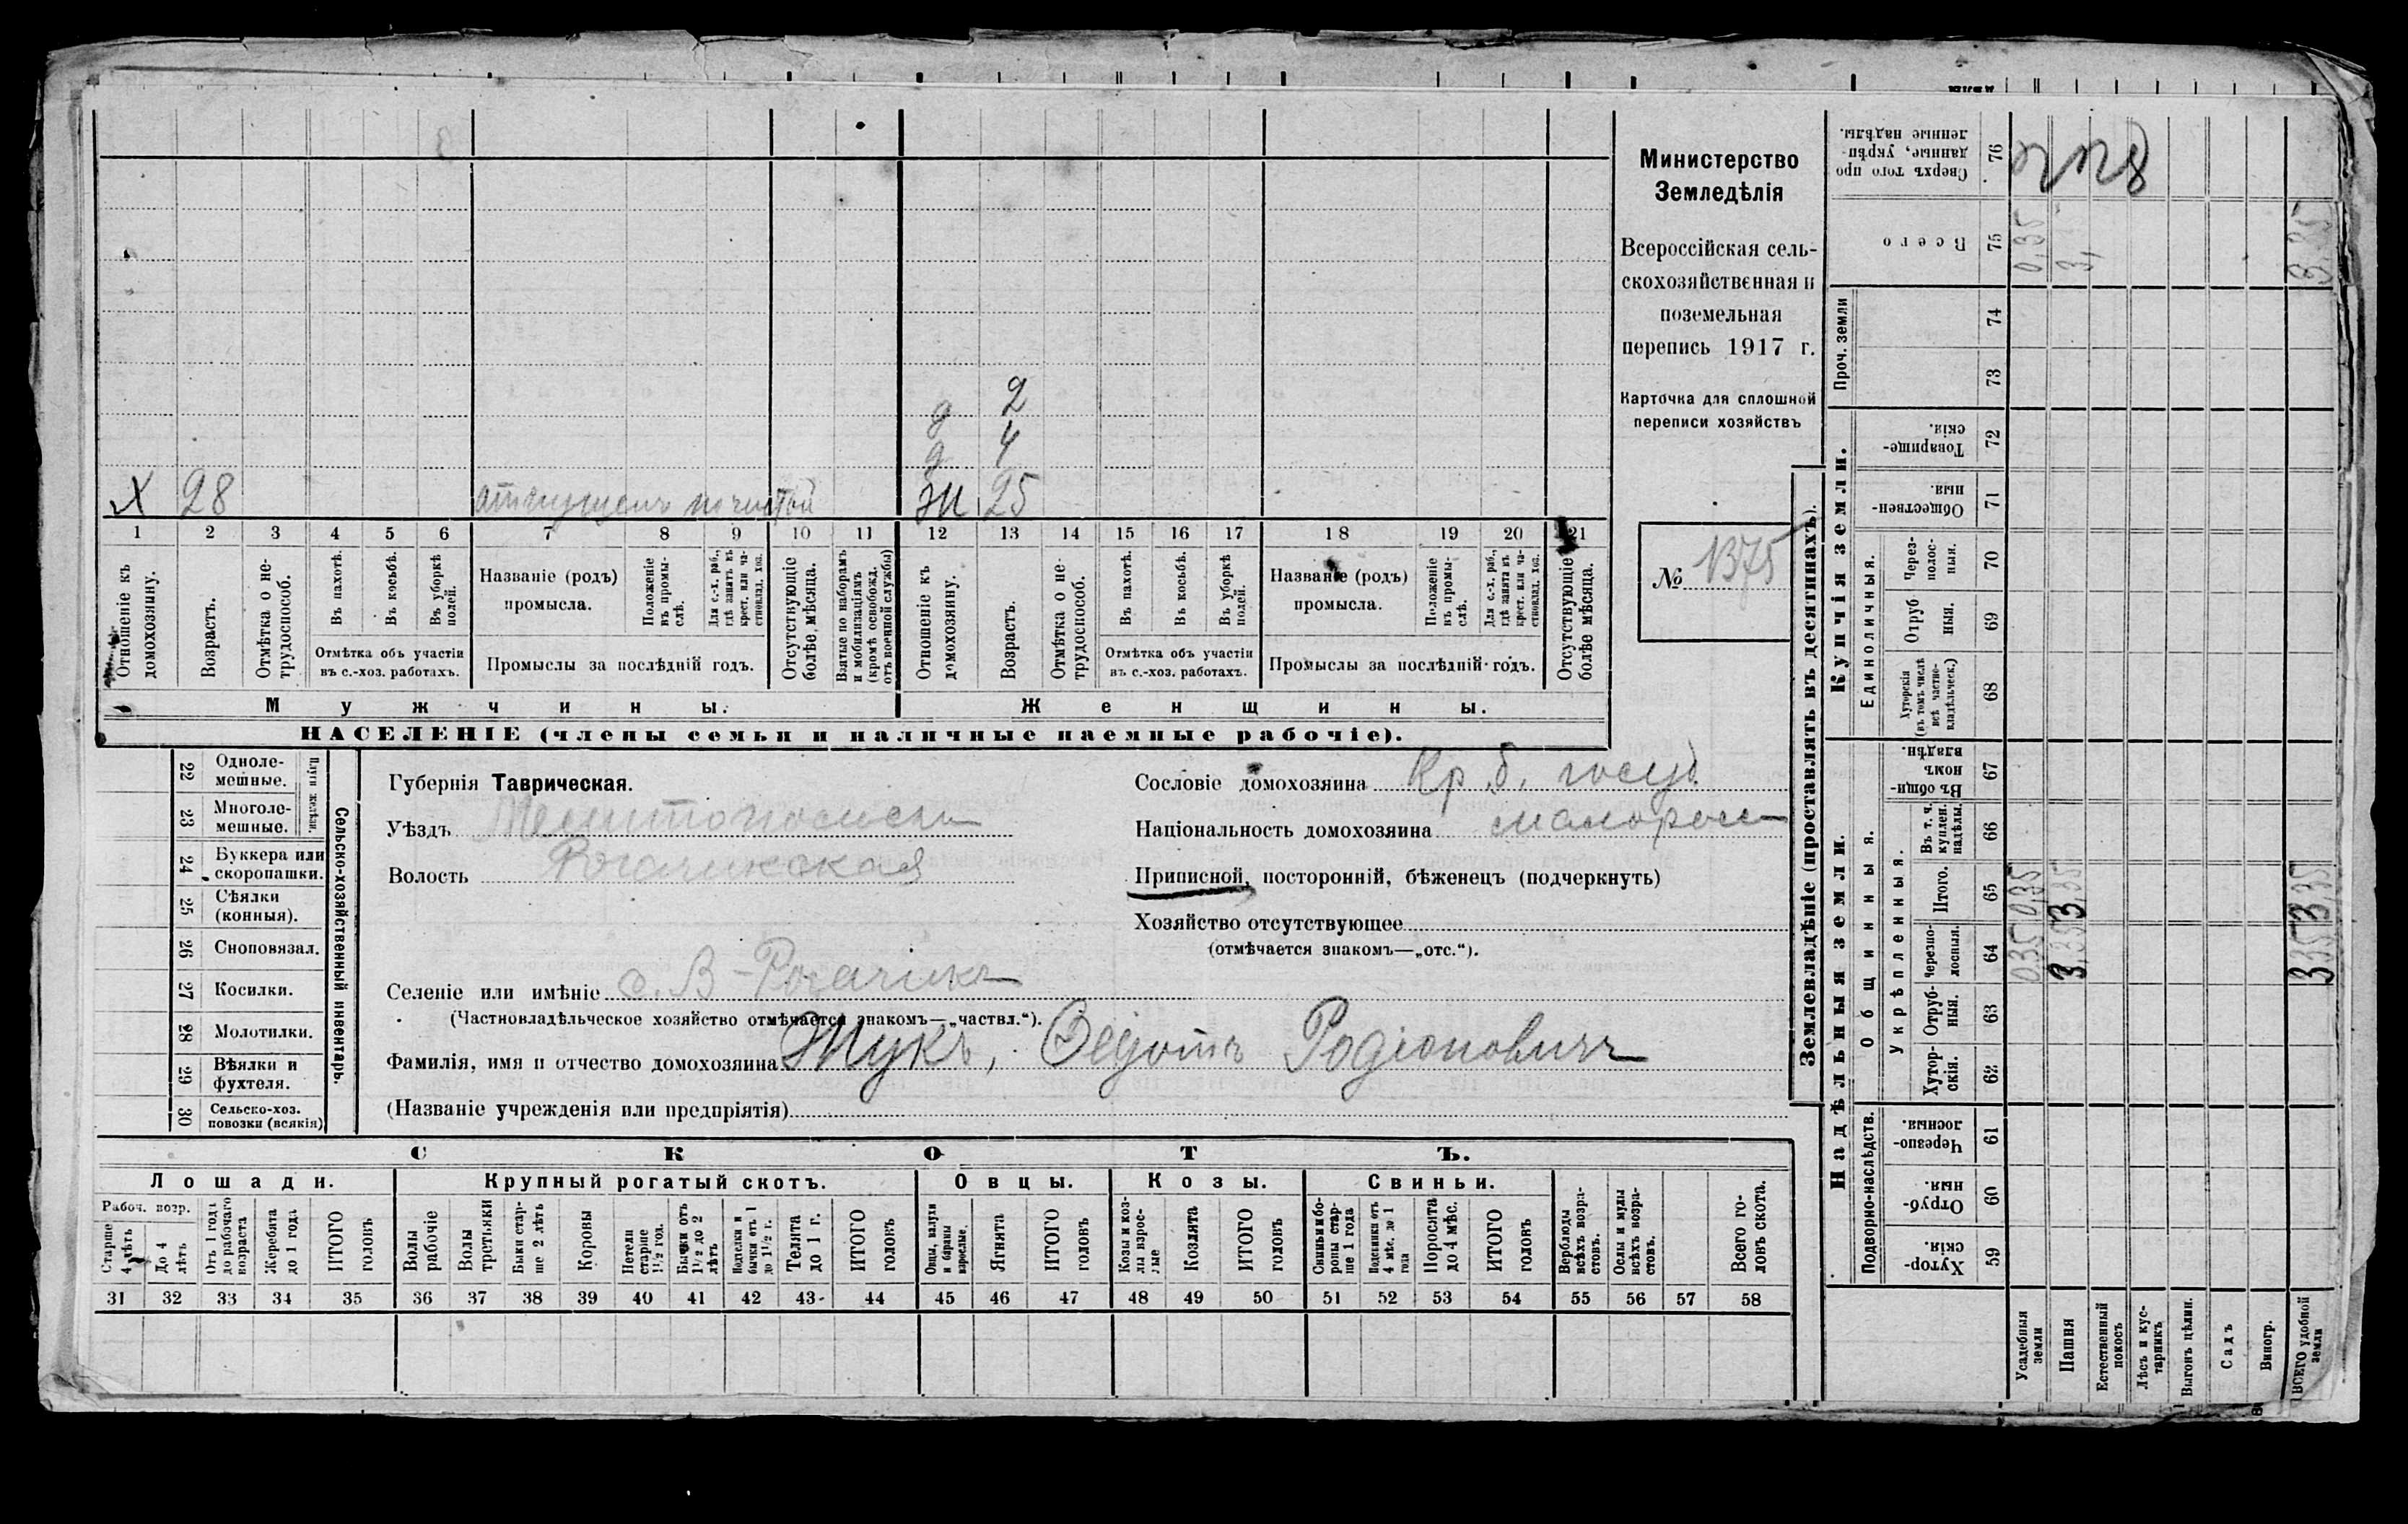 2
д
4
д
Х 28
Ж 25
1 2 3 4 5 6 7 8 9 10 11 12 13 14 15 16 17 18 19 20 21
Отношеніе къ домохозяину.
Возрастъ.
Отмѣтка о не-трудоспособ.
Въ пахотѣ.
Въ косьбѣ.
Въ уборкѣ полей.
Отмѣтка объ участіи
въ с.-хоз. работахъ.
Названіе (родъ)
промысла.
Положеніе въ промы-слѣ.
Для с.-х. раб., гдѣ занятъ въ крест. или ча-стновлад. хоз.
Промыслы за послѣдній годъ.
Отсутствующіе болѣе мѣсяца.
Взятые по наборамъ и мобилизаціямъ (кромѣ освобожд. отъ военной службы)
Отношеніе къ домохозяину.
Возрастъ.
Отмѣтка о не-трудоспособ.
Въ пахотѣ.
Въ косьбѣ.
Въ уборкѣ полей.
Отмѣтка объ участіи
въ с.-хоз. работахъ.
Названіе (родъ)
промысла.
Положеніе въ промы-слѣ.
Для с.-х. раб., гдѣ занята въ крест. или ча-стновлад. хоз.
Промыслы за послѣдній годъ.
Отсутствующіе болѣе мѣсяца.
Мужчины.
Женщины.
НАСЕЛЕНІЕ (члены семьи и наличные наемные рабочіе).
Министерство
Земледѣлія
Всероссійская сель-
скохозяйственная и
поземельная
перепись 1917 г.
Карточка для сплошной
переписи хозяйствъ
№ 1375
22 Одноле-мешные.
23 Многоле-мешные.
Плуги желѣзн.
24 Буккера или скоропашки.
25 Сѣялки (конныя).
26 Сноповязал.
27 Косилки.
28 Молотилки.
29 Вѣялки и фухтеля.
30 Сельско-хоз. повозки (всякія)
Сельско-хозяйственный инвентарь.
Губернія Таврическая.
Уѣздъ Мелитопольск
Волость Рогачикская
Селеніе или имѣніе с. В-Рогачикъ
(Частновладѣльческое хозяйство отмѣчается знакомъ—„частвл.“).
Фамилія, имя и отчество домохозяина Жукъ, Федотъ Родіоновичъ
(Названіе учрежденія или предпріятія)
Сословіе домохозяина Кр. б. госуд.
Національность домохозяина малоросс
Приписной, посторонній, бѣженецъ (подчеркнуть)
Хозяйство отсутствующее
(отмѣчается знакомъ—„отс.“).
СКОТЪ.
Лошади.
Крупный рогатый скотъ.
Овцы.
Козы.
Свиньи.
Рабоч. возр.
Старше 4 лѣтъ
До 4 лѣтъ
Отъ 1 года до рабочаго возраста
Жеребята до 1 года
ИТОГО головъ
Волы рабочіе
Волы третьяки
Быки стар-ше 2 лѣтъ
Коровы
Нетели старше 1½ год.
Бычки отъ 1½ до 2 лѣтъ
Телки и бычки отъ 1 до 1½ г.
Телята до 1 г.
ИТОГО головъ
Овцы, валухи и бараны взрослые.
Ягнята
ИТОГО головъ
Козы и коз-лы взрос-лые
Козлята
ИТОГО головъ
Свиньи и бо-ровы стар-ше 1 года
Подсвинки отъ 4 мѣс. до 1 года
Поросята до 4 мѣс.
ИТОГО головъ
Верблюды всѣхъ возра-стовъ.
Ослы и мулы всѣхъ возра-стовъ.
Всего го-ловъ скота.
31 32 33 34 35 36 37 38 39 40 41 42 43 44 45 46 47 48 49 50 51 52 53 54 55 56 57 58
Землевладѣніе (проставлять въ десятинахъ).
Надѣльныя земли.
Купчія земли.
Проч. земли
Подворно-наслѣдств.
Общинныя.
Укрѣпленныя.
Единоличныя.
76 Сверхъ того про-данные, укрѣп-ленные надѣлы.
75 Всего 0,35 3, 3,35
74
73
72 Товарище-скія.
71 Обществен-ныя.
70 Через-полос-ныя.
69 Отруб-ныя.
68 Хуторскія (въ томъ числѣ всѣ частно-владѣльческ.)
67 Въ общи-номъ владѣн.
66 Въ т. ч. куплен. надѣлы.
65 Итого. 0,35 3,35 3,35
64 Черезпо-лосныя. 0,35 3, 3,35
63 Отруб-ныя.
62 Хутор-скія.
61 Черезпо-лосныя.
60 Отруб-ныя.
59 Хутор-скія.
Усадебныя земли
Пашня
Естественный покосъ
Лѣсъ и кус-тарникъ
Выгонъ цѣлин.
Садъ
Виногр.
ВСЕГО удобной земли